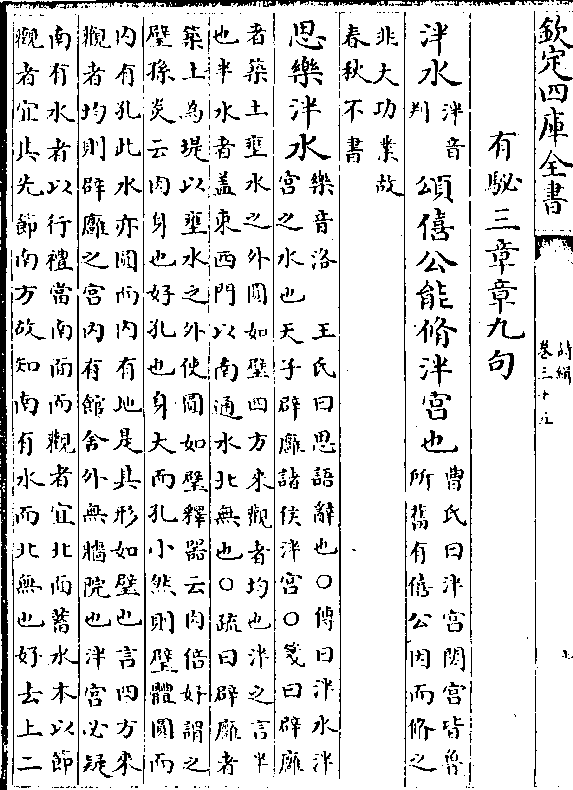 欽定四庫全書
詩緝
卷三十五
七
有駜三章章九句
泮水泮音
判
頌僖公能脩泮宫也曹氏曰泮宫閟宫皆魯
所舊有僖公因而脩之
非大功業故
春秋不書
思樂泮水樂音洛 王氏曰思語辭也○傳曰泮水泮
宫之水也天子辟廱諸侯泮宫○箋曰辟廱
者築土壅水之外圓如璧四方來觀者均也泮之言半
也半水者蓋東西門以南通水北無也○疏曰辟廱者
築土為堤以壅水之外使圓如璧釋器云肉倍好謂之
璧孫炎云肉身也好孔也身大而孔小然則璧體圓而
内有孔此水亦圓而内有地是其形如璧也言四方來
觀者均則辟廱之宫内有館舍外無牆院也泮宫必疑
南有水者以行禮當南面而觀者宜北面蓄水本以節
觀者宜其先節南方故知南有水而北無也好去上二